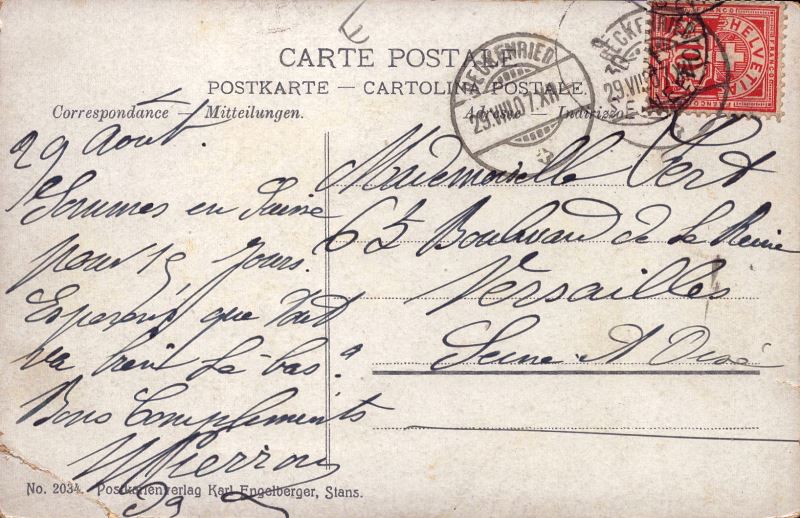 CARTE POSTALE
POSTKARTE — CARTOLINA POSTALE
Correspondance — Mitteilungen.
Adresse — Indirizzo
BECKENRIED
29.VIII.07.XII
29.VIII
HELVETIA
FRANCO
29 Août.
Sommes en Suisse
pour 15 jours.
Espérons que tout
va bien là-bas?
Bons Compliments
Mademoiselle Vert
65 Boulevard de la Reine
Versailles
Seine & Oise
No. 2034. Postkartenverlag Karl Engelberger, Stans.